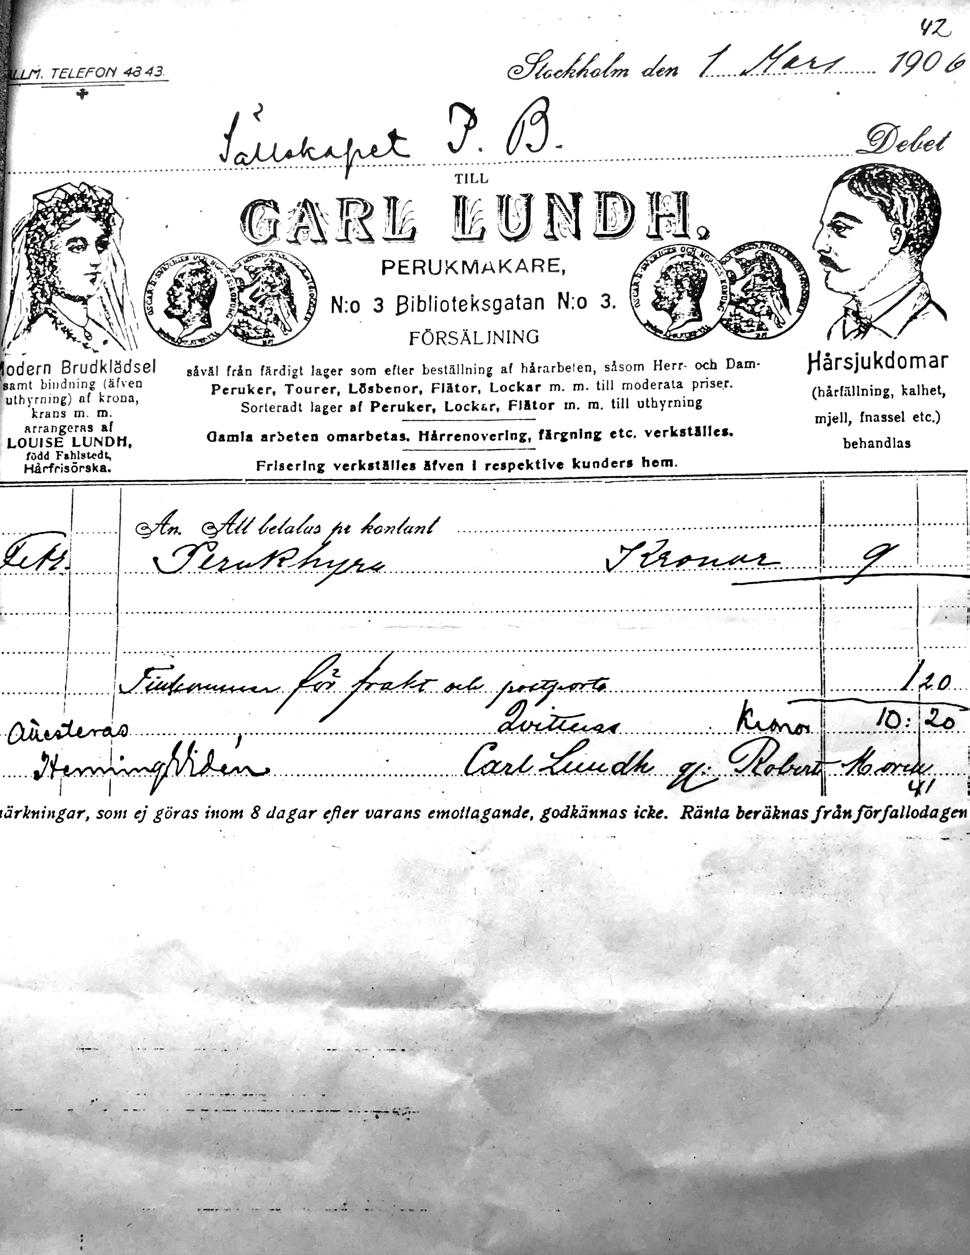 42
ALLM. TELEFON 48 43.
Stockholm den 1 Mars 1906
Sällskapet P. B. Debet
TILL
CARL LUNDH.
PERUKMAKARE,
N:o 3 Biblioteksgatan N:o 3.
FÖRSÄLJNING
såväl från färdigt lager som efter beställning af hårarbeten, såsom Herr- och Dam-
Peruker, Tourer, Lösbenor, Flätor, Lockar m. m. till moderata priser.
Sorteradt lager af Peruker, Lockar, Flätor m. m. till uthyrning
Gamla arbeten omarbetas. Hårrenovering, färgning etc. verkställes.
Frisering verkställes äfven i respektive kunders hem.
Modern Brudklädsel
samt bindning (äfven
uthyrning) af krona,
krans m. m.
arrangeras af
LOUISE LUNDH,
född Fahlstedt,
Hårfrisörska.
Hårsjukdomar
(hårfällning, kalhet,
mjell, fnassel etc.)
behandlas
An. Att betalas pr kontant
Febr. Perukhyra Kronor 9
för frakt och postporto 1 20
Kvitteras Kronor 10: 20
Henning Widén Carl Lundh gm: Robert
41
märkningar, som ej göras inom 8 dagar efter varans emottagande, godkännas icke. Ränta beräknas från förfallodagen